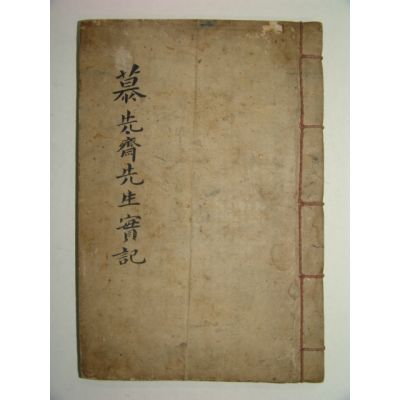 慕先齋先生實記